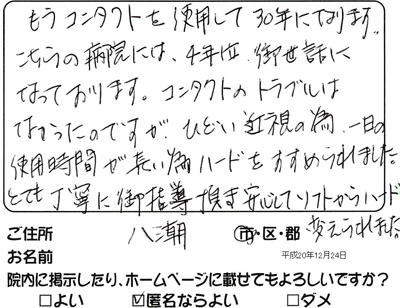 もうコンタクトを使用して30年になります。
こちらの病院には、4年位御世話に
なっております。コンタクトのトラブルは
なかったのですが、ひどい近視の為、一日の
使用時間が長い為ハードをすすめられました。
とても丁寧に御指導頂き安心してソフトからハードに
変えられました。
ご住所 八潮 市・区・郡
お名前 平成20年12月24日
院内に掲示したり、ホームページに載せてもよろしいですか?
□よい ☑匿名ならよい □ダメ